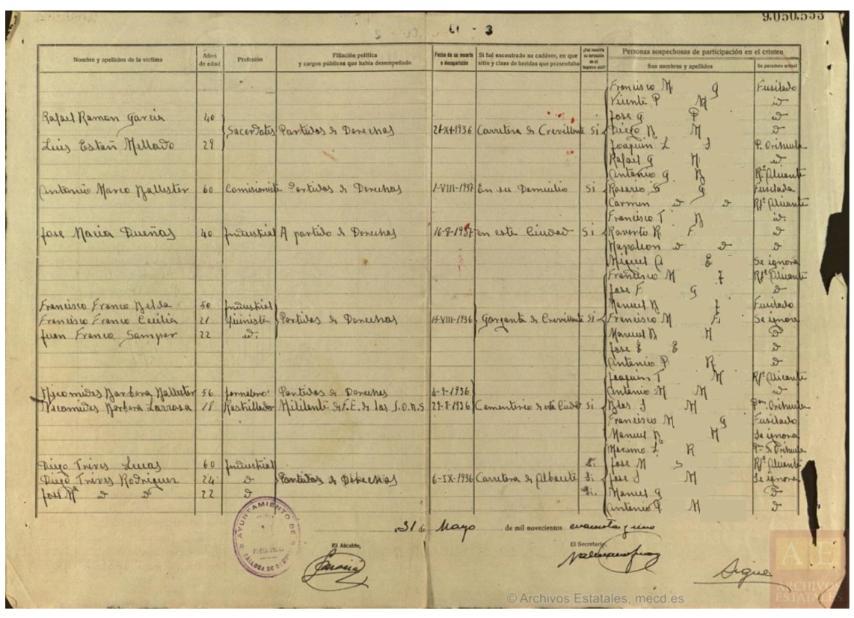 3
9.050.553
Nombre y apellidos de la víctima
Años de edad
Profesión
Filiación política y cargos públicos que había desempeñado
Fecha de su muerte o desaparición
Si fué encontrado su cadáver, en que sitio y clase de heridas que presentaba
Personas sospechosas de participación en el crimen
Sus nombres y apellidos
Su paradero actual
Francisco M G Fusilado
Vicente P M id
Rafael Ramon Garcia 40 Jose G P d
Sacerdotes Partidos de Derechas Carretera de Crevillente Si Diego B M d
Luis Estañ Mellado 29 Joaquin L J P. Orihuela
Rafael G M d
Antonio G B Rº Alicante
Antonio Marco Ballester 60 Comisionista Partidos de Derechas En su Domicilio Si Rosario G G Fusilada
Carmen d d Rº Alicante
Francisco T B id.
Jose Maria Dueñas 40 Industrial A partido de Derechas en esta Ciudad Si Raverto R F d
Napoleon d d d
Miguel A E Se ignora
Francisco M F Rº Alicante
Jose F G d
Francisco Franco Belda 50 Industrial Manuel B F Fusilado
Francisco Franco Cecilia 21 Partidos de Derechas Gorgonta de Crevillente Si Francisco M E Se ignora
Juan Franco Samper 22 id. Manuel B M d
Jose E E d
Antonio P R d
Joaquin T M Rº Alicante
Necomides Barbera Ballester 56 Jornalero Partidos de Derechas Antonio M M d
Necomides Barbera Larrosa 18 Rastrillador 29-8-1936 Cementerio de esta Ciudad Si Blas J M Orihuela
Francisco M G Fusilado
Manuel B M Se ignora
L R Orihuela
Diego Trives Lucas 60 Industrial Si Jose M S Rº Alicante
Diego Trives Rodriguez 24 d Partidos de Derechas 6-IX-1936 Carretera de Albacete Si Jose J M Se ignora
Jose Mª d d 22 d Si Manuel G d
Antonio P M d
31 de Mayo de mil novecientos cuarenta y uno
AYUNTAMIENTO DE
El Alcalde,
El Secretario,
Sigue
© Archivos Estatales, mecd.es
AE
ARCHIVOS
ESTATALES